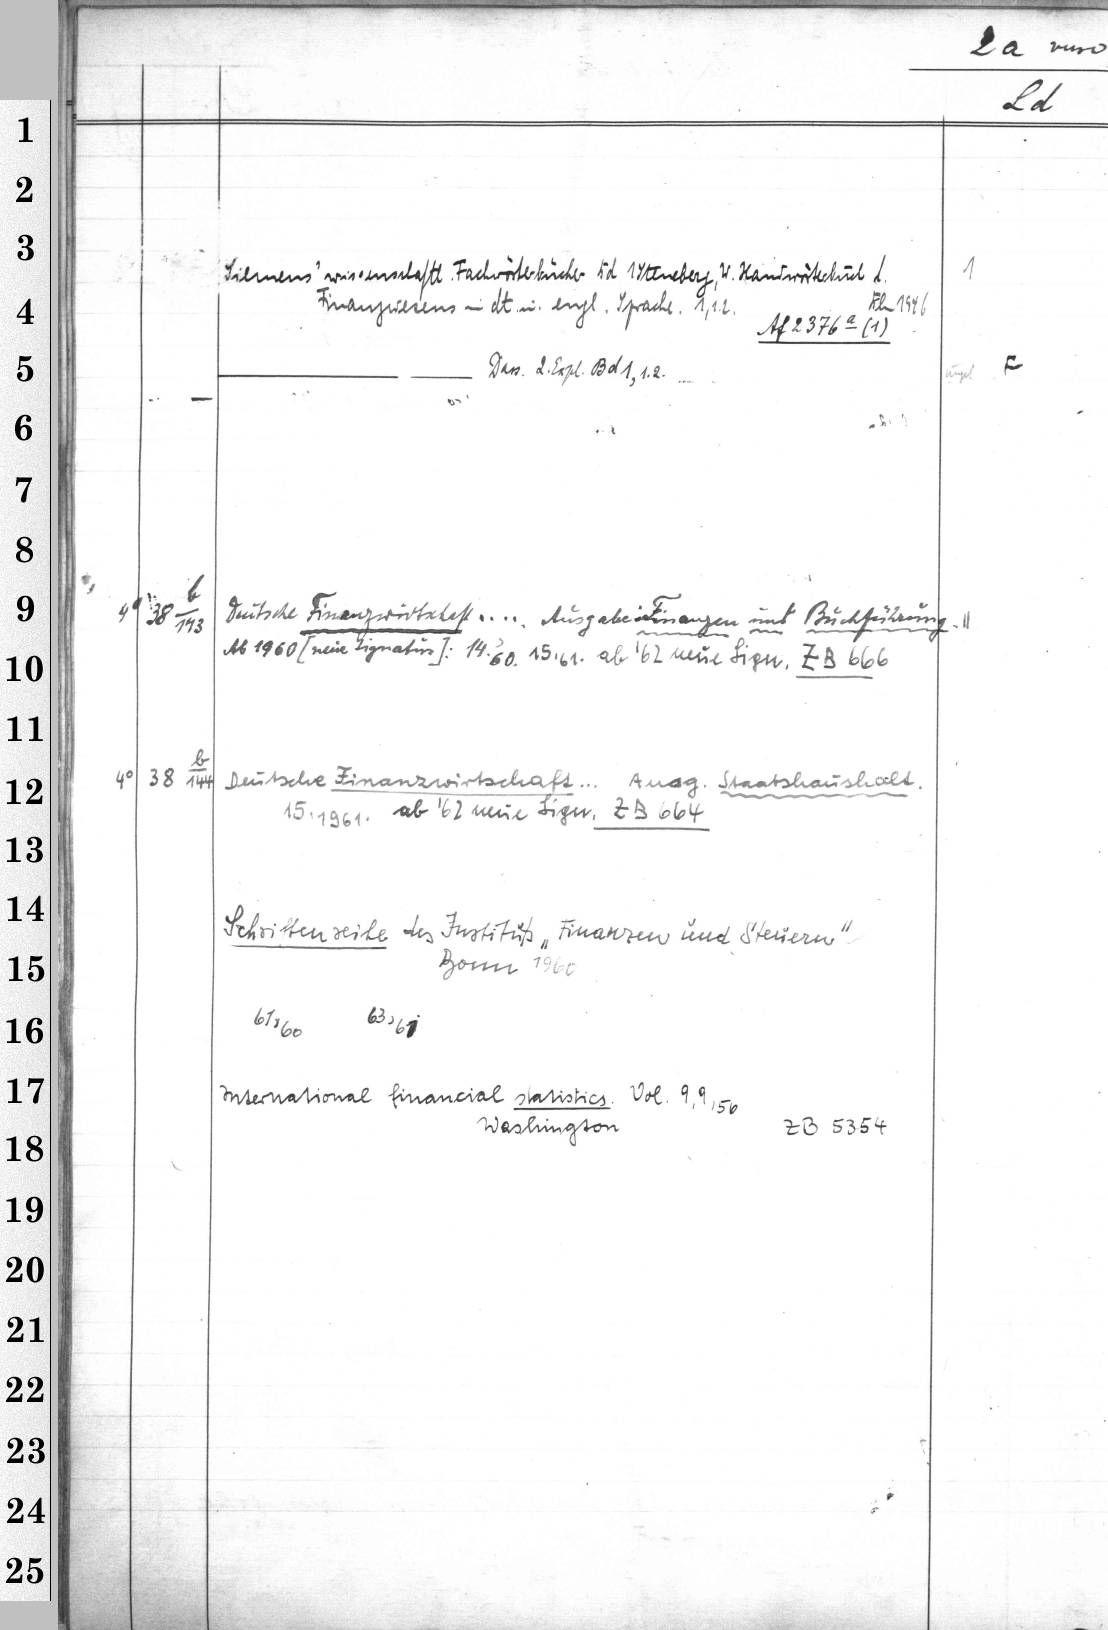 2a verso
Ld
1
2
3
Siemens' wissenschaftl. Fachwörterbücher Bd 1 Itteneberg, W. Handwörterbuch d. 1
4
Finanzwesens in dt. u. engl. Sprache. 1,1.2. 1946
Af 2376 a (1)
5
Dass. 2. Expl. Bd 1, 1.2. F
6
7
8
9
4° 38 b/143 Deutsche Finanzwirtschaft .... Ausgabe: Finanzen und Buchführung."
Ab 1960 [neue Signatur]: 14.60. 15.61. ab '62 neue Sign. ZB 666
10
11
4° 38 b/144 Deutsche Finanzwirtschaft ... Ausg. Staatshaushalt.
12
15.1961. ab '62 neue Sign. ZB 664
13
14
Schriftenreihe des Instituts „Finanzen und Steuern"
15
Bonn 1960
16
61,60 63,61
17
International financial statistics. Vol. 9,9,56
Washington ZB 5354
18
19
20
21
22
23
24
25